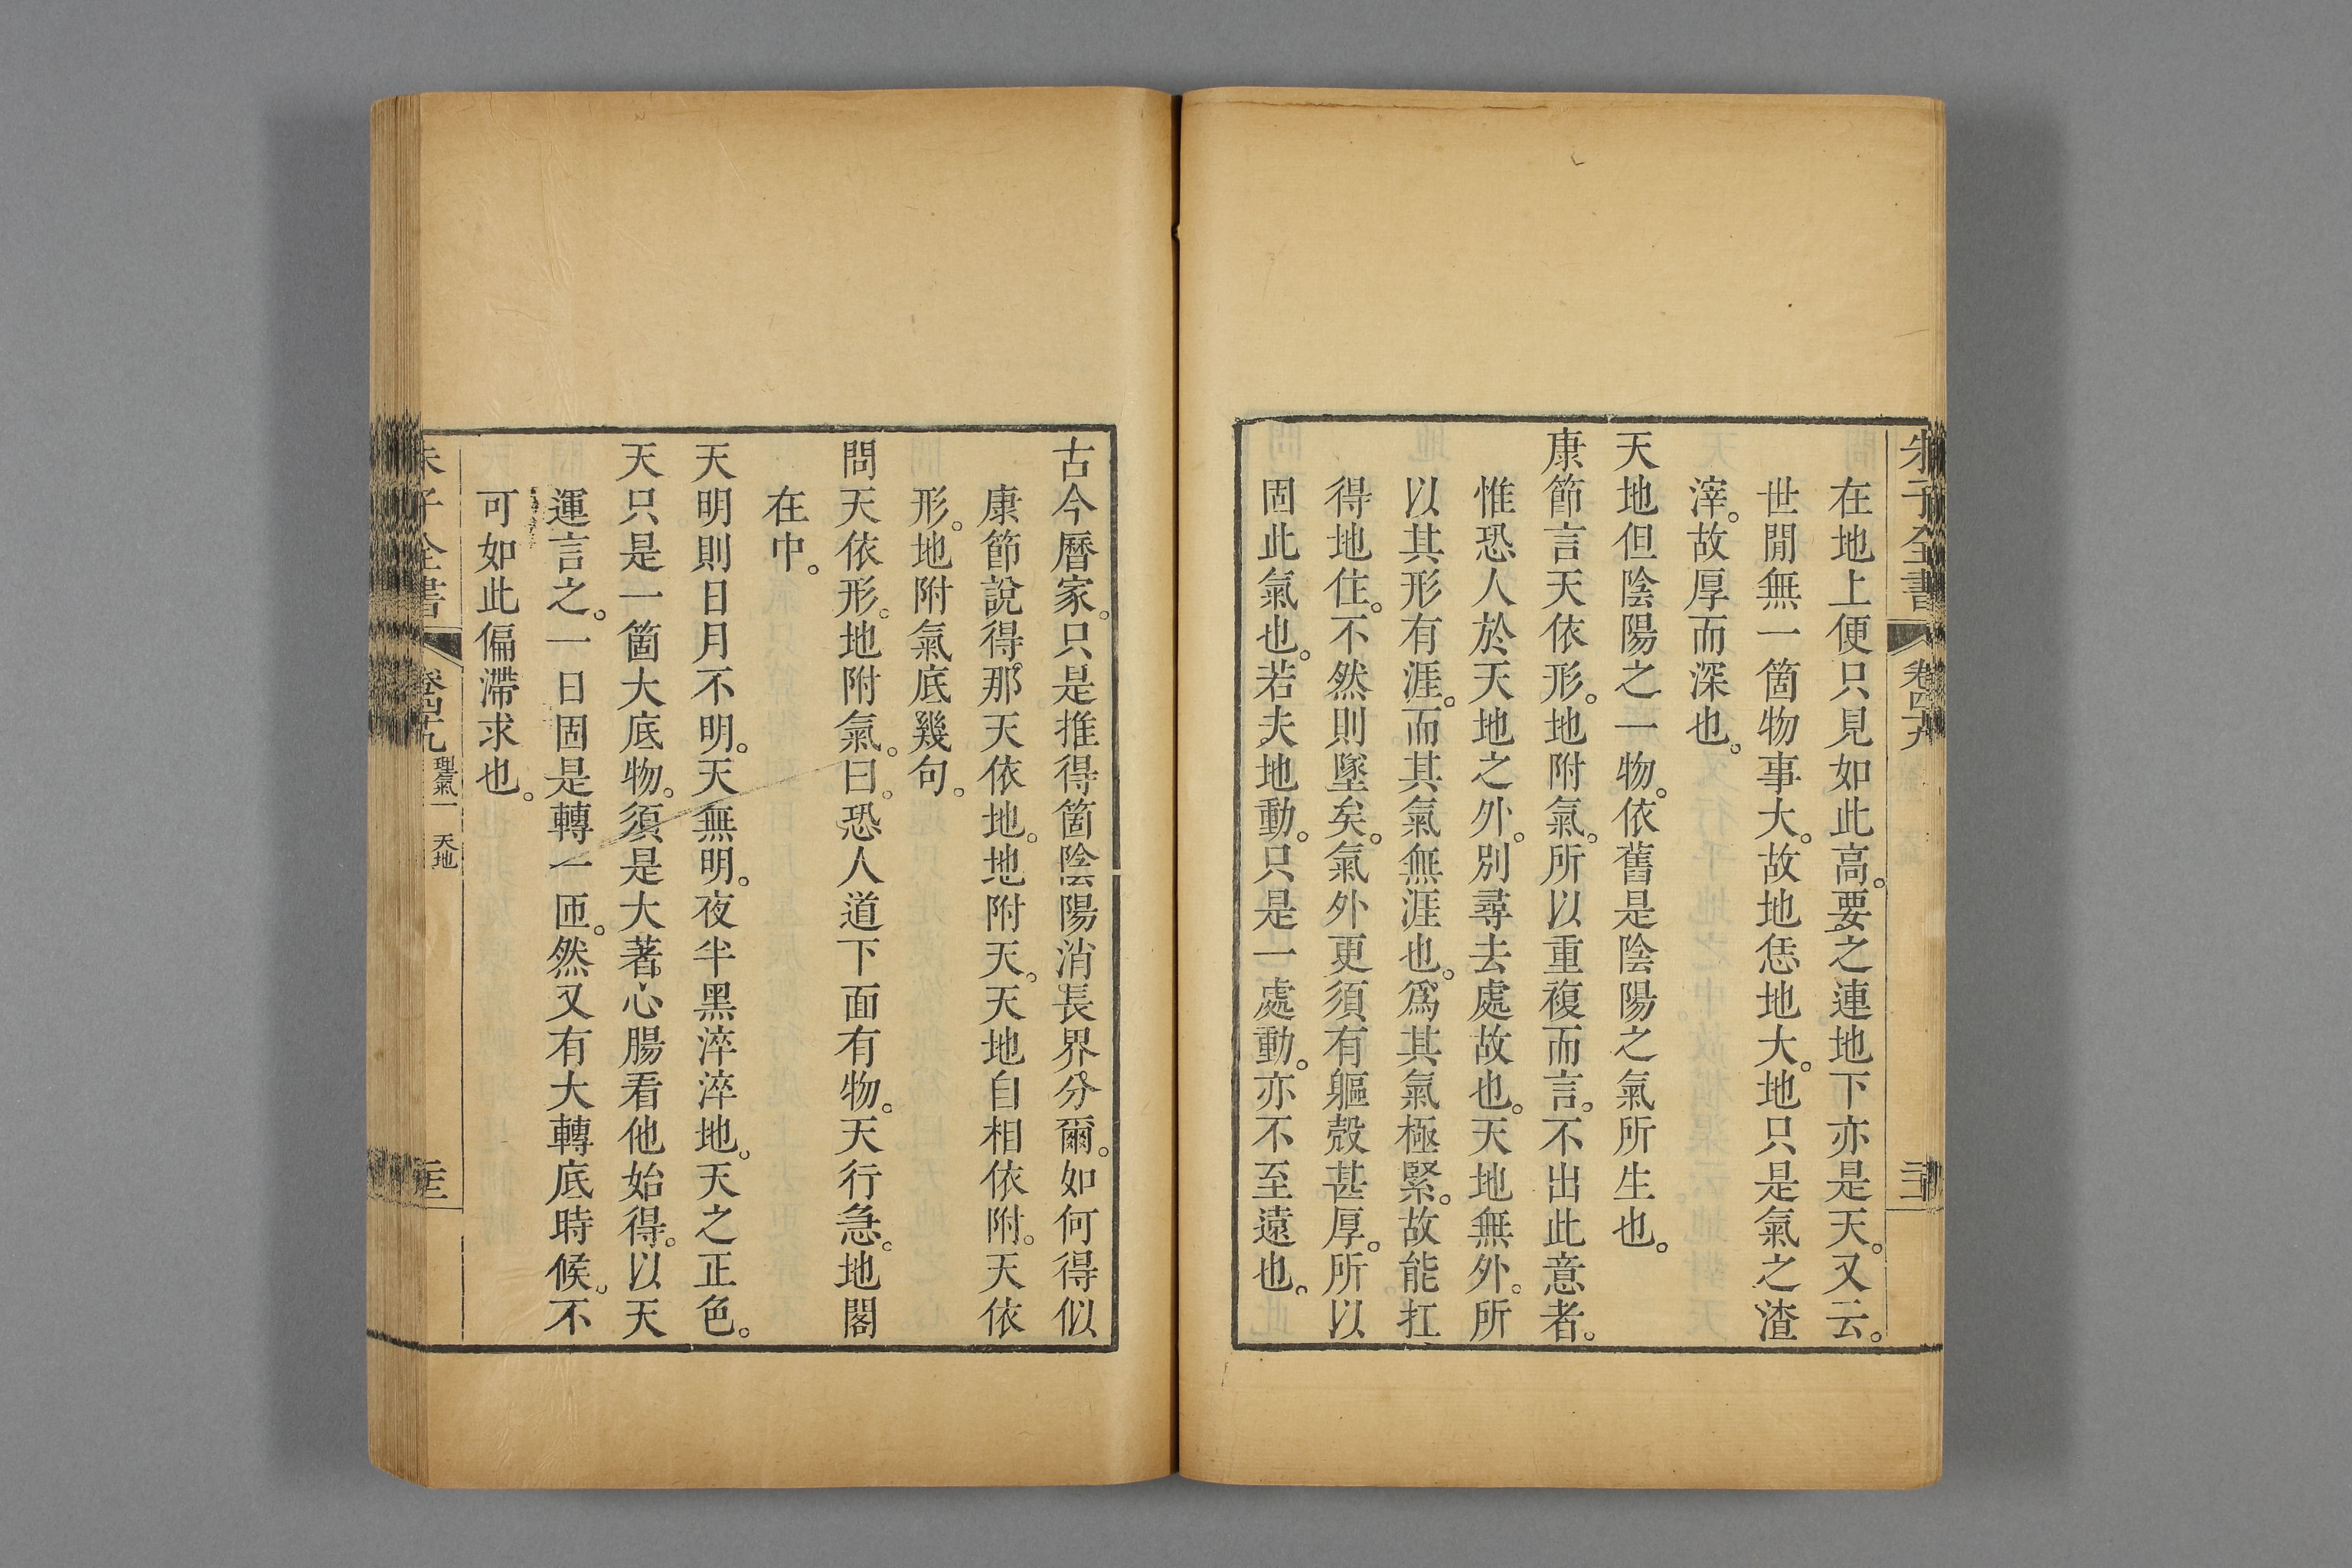 朱子全書 卷四十九
在地上便只見如此高。要之連地下亦是天。又云。
世閒無一箇物事大。故地恁地大。地只是氣之渣
滓。故厚而深也。
天地但陰陽之一物。依舊是陰陽之氣所生也。
康節言天依形。地附氣。所以重複而言。不出此意者。
惟恐人於天地之外。別尋去處故也。天地無外。所
以其形有涯。而其氣無涯也。爲其氣極緊。故能扛
得地住。不然則墜矣。氣外更須有軀殼甚厚。所以
固此氣也。若夫地動。只是一處動。亦不至遠也。
古今曆家。只是推得箇陰陽消長界分爾。如何得似
康節說得。那天依地。地附天。天地自相依附。天依
形。地附氣底幾句。
問天依形。地附氣。曰。恐人道下面有物。天行急。地閣
在中。
天明則日月不明。天無明。夜半黑淬淬地。天之正色。
天只是一箇大底物。須是大著。心腸看他始得。以天
運言之。一日固是轉一匝。然又有大轉底時候。不
可如此偏滯求也。
朱子全書 卷四十九 理氣一 天地